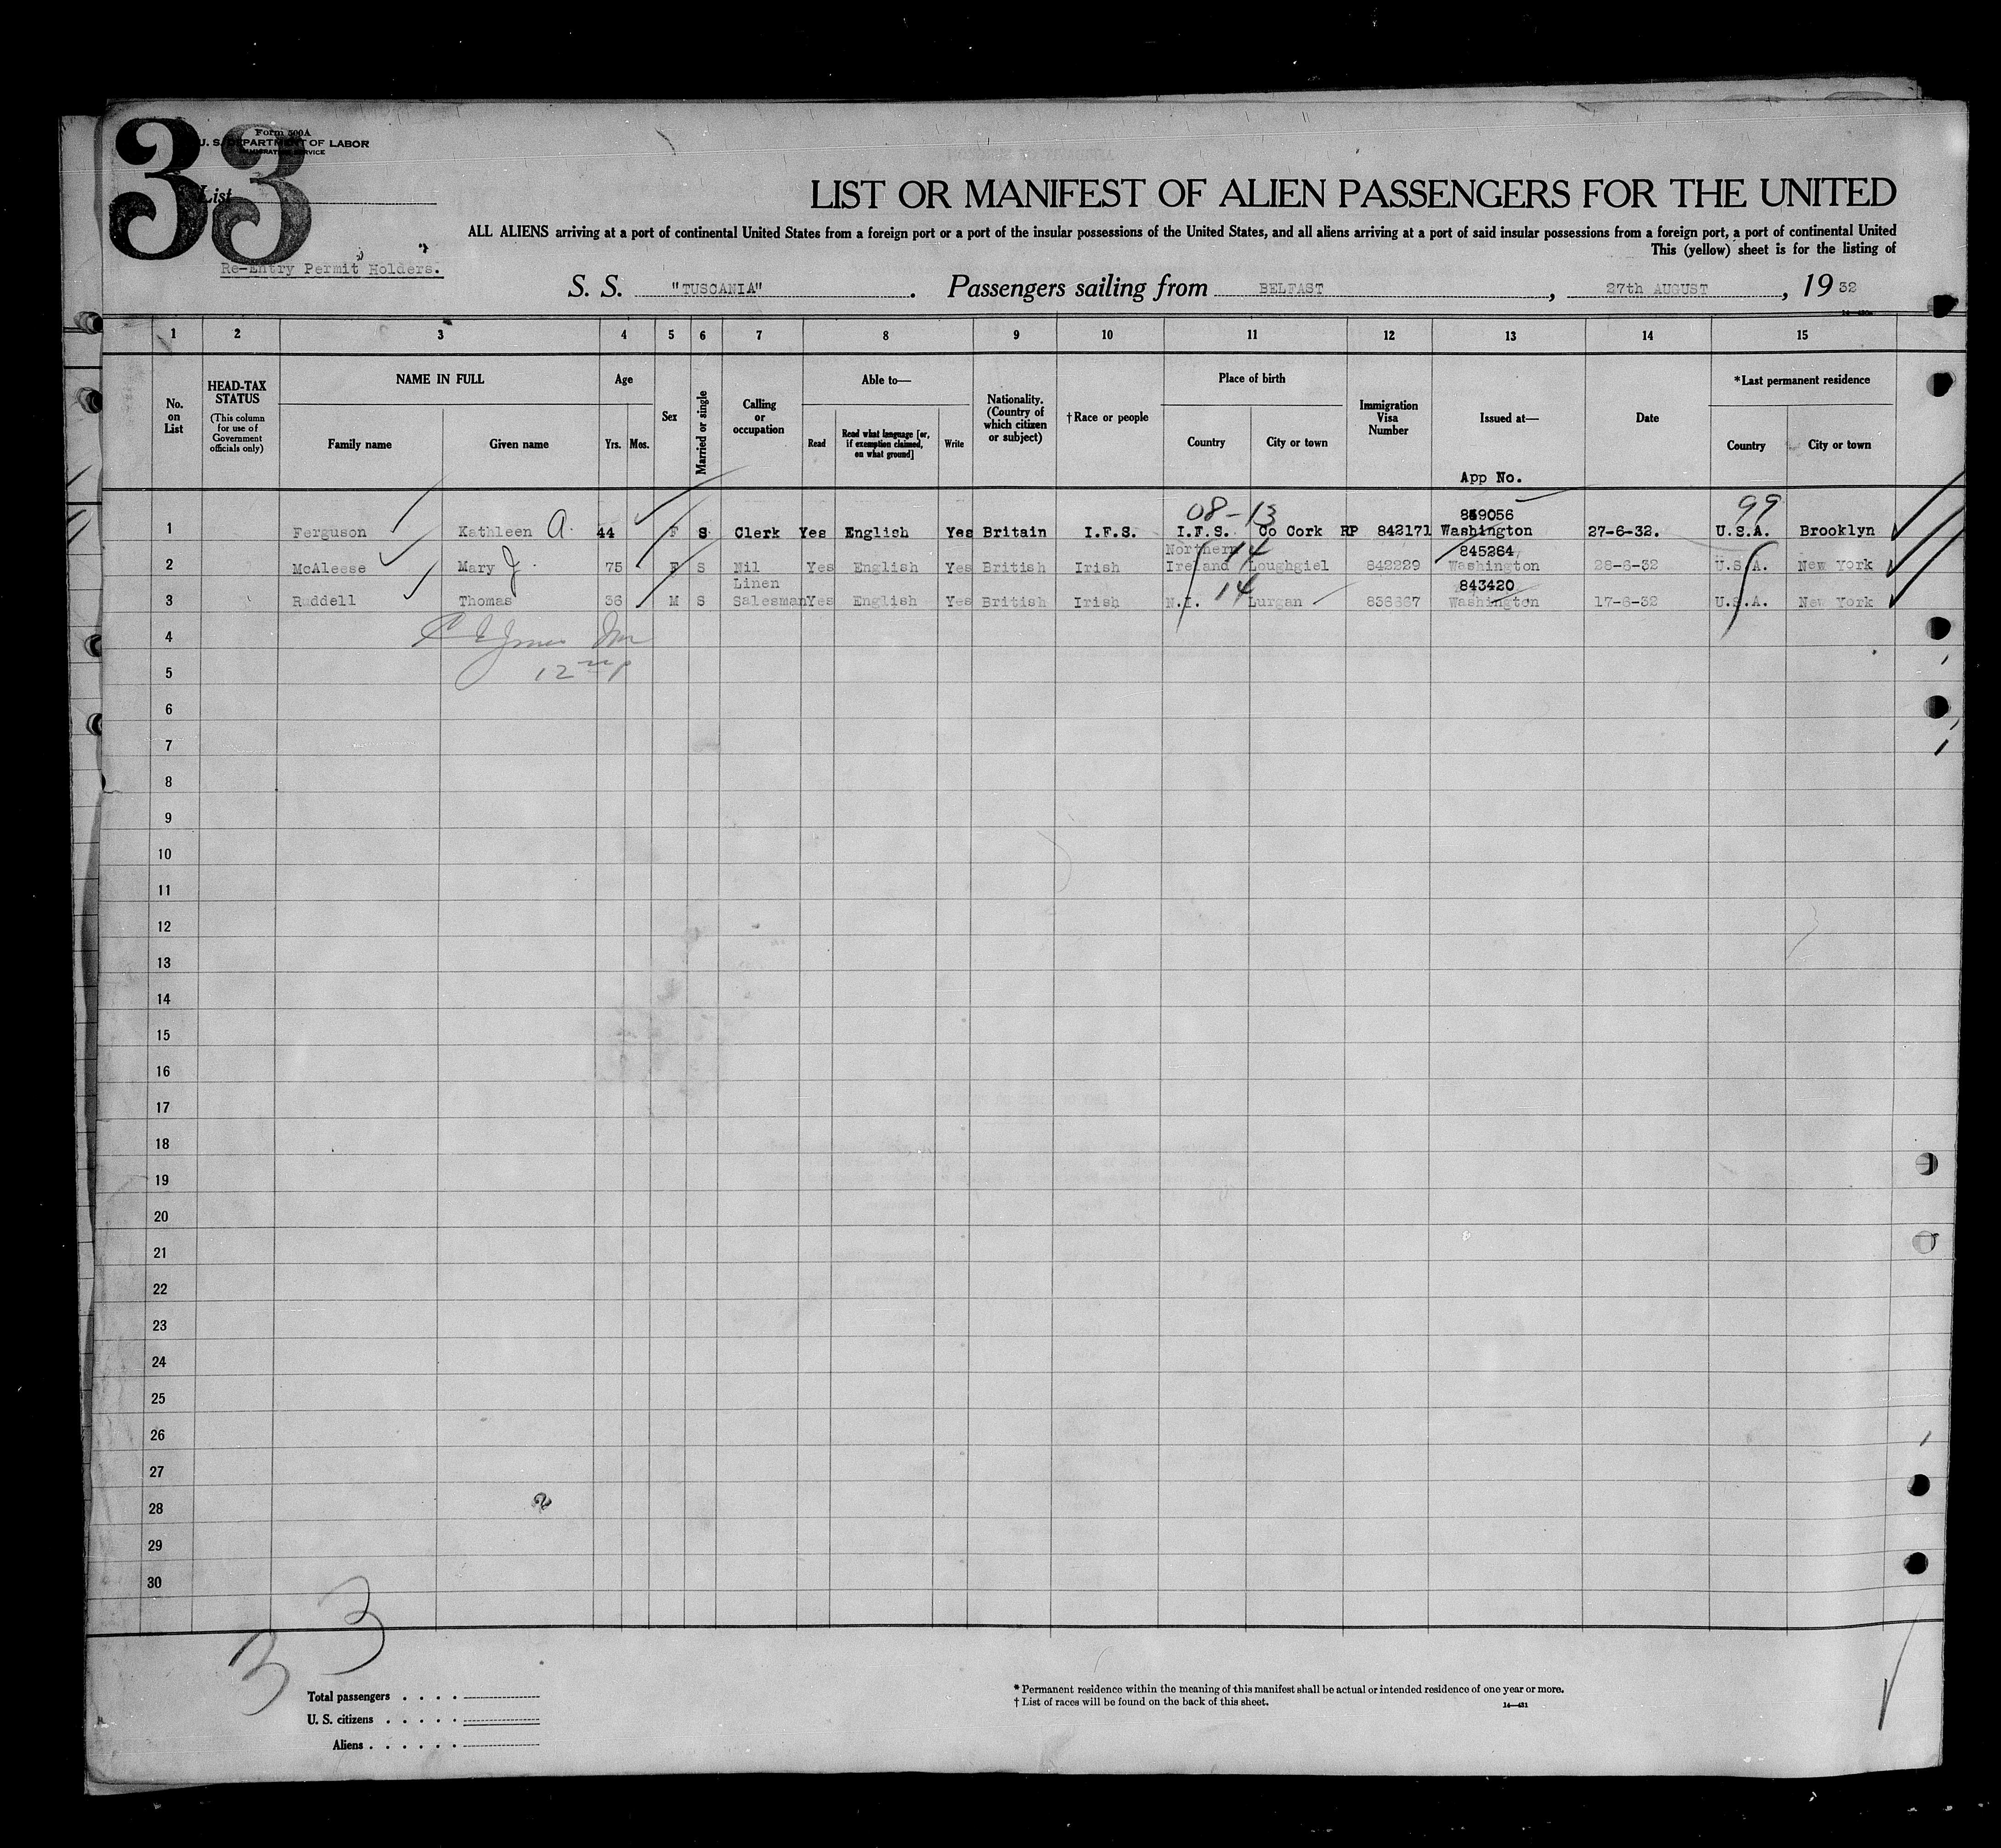 33
Form 500A
U. S. DEPARTMENT OF LABOR
IMMIGRATION SERVICE
List
Re-Entry Permit Holders.
LIST OR MANIFEST OF ALIEN PASSENGERS FOR THE UNITED
ALL ALIENS arriving at a port of continental United States from a foreign port or a port of the insular possessions of the United States, and all aliens arriving at a port of said insular possessions from a foreign port, a port of continental United
This (yellow) sheet is for the listing of
S. S. "TUSCANIA". Passengers sailing from BELFAST, 27th AUGUST, 19 32
1 2 3 4 5 6 7 8 9 10 11 12 13 14 15
No. on List
HEAD-TAX STATUS (This column for use of Government officials only)
NAME IN FULL
Family name Given name
Age
Yrs. Mos.
Sex
Married or single
Calling or occupation
Able to—
Read Read what language [or, if exemption claimed, on what ground] Write
Nationality. (Country of which citizen or subject)
†Race or people
Place of birth
Country City or town
Immigration Visa Number
Issued at—
App No.
Date
*Last permanent residence
Country City or town
08-13 859056 99
1 Ferguson Kathleen A. 44 F S Clerk Yes English Yes Britain I.F.S. I.F.S. Co Cork RP 842171 Washington 27-6-32. U.S.A. Brooklyn
Northern 14 845264
2 McAleese Mary J. 75 F S Nil Yes English Yes British Irish Ireland Loughgiel 842229 Washington 28-6-32 U.S.A. New York
Linen 14 843420
3 Ruddell Thomas 36 M S Salesman Yes English Yes British Irish N.I. Lurgan 838367 Washington 17-6-32 U.S.A. New York
4
5
6
7
8
9
10
11
12
13
14
15
16
17
18
19
20
21
22
23
24
25
26
27
28
29
30
33
Total passengers
U. S. citizens
Aliens
* Permanent residence within the meaning of this manifest shall be actual or intended residence of one year or more.
† List of races will be found on the back of this sheet.
14—431